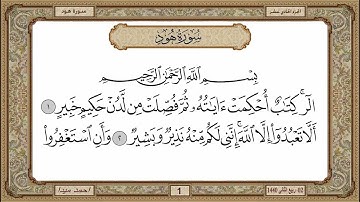 سورة هود
الجزء الحادي عشر
سُورَةُ هُودٍ
بِسْمِ ٱللَّهِ ٱلرَّحْمَٰنِ ٱلرَّحِيمِ
الٓر ۚ كِتَٰبٌ أُحْكِمَتْ ءَايَٰتُهُۥ ثُمَّ فُصِّلَتْ مِن لَّدُنْ حَكِيمٍ خَبِيرٍ ١
أَلَّا تَعْبُدُوٓا۟ إِلَّا ٱللَّهَ ۚ إِنَّنِى لَكُم مِّنْهُ نَذِيرٌ وَبَشِيرٌ ٢ وَأَنِ ٱسْتَغْفِرُوا۟
1
02 ربيع الثاني 1440